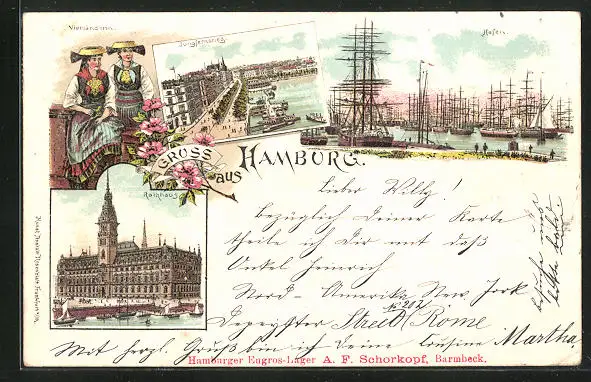 Vierländerin.
Jungfernstieg
Hafen
GRUSS
AUS
HAMBURG.
Rathhaus
Lieber Willy!
Bezüglich Deiner Karte
theile ich Dir mit daß
Onkel Heinrich
Nord-Amerika New York
№ 202
Street Rome
Mit herzl. Gruß bin ich Deine Cousine Martha
Hamburger Engros-Lager A. F. Schorkopf, Barmbeck.